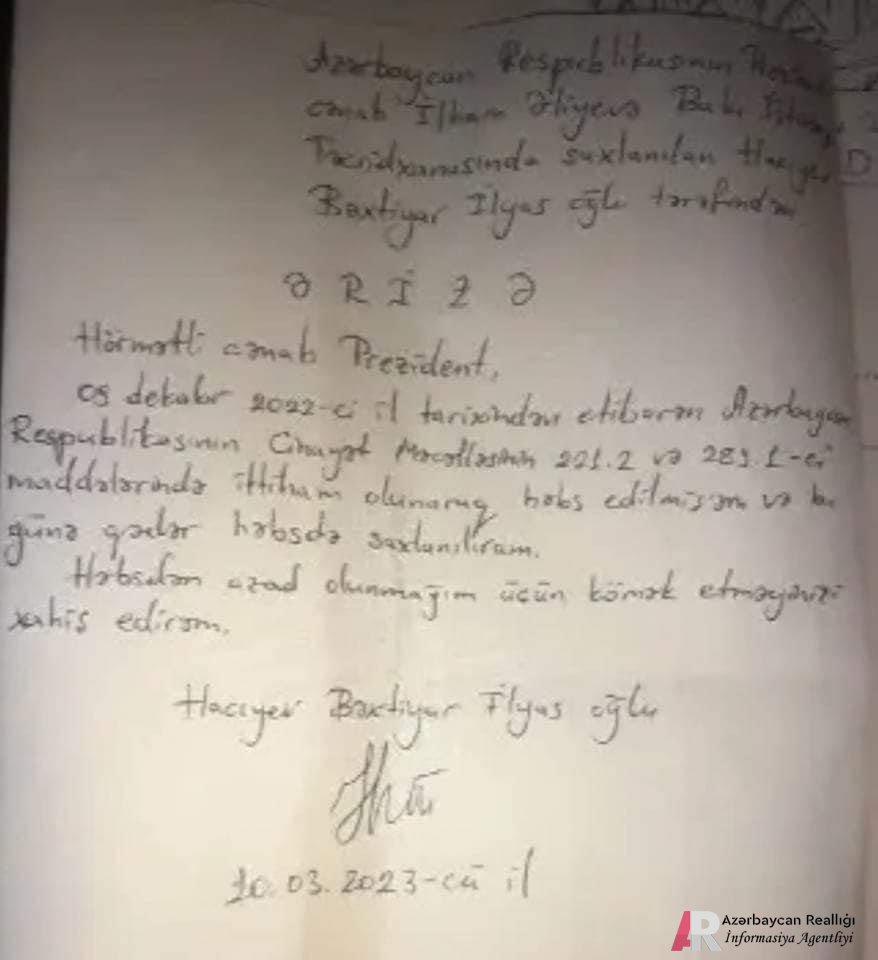 Azərbaycan Respublikasının
cənab İlham Əliyevə Bakı
Təcridxanasında saxlanılan Hacıyev
Bəxtiyar İlyas oğlu tərəfindən
ƏRİZƏ
Hörmətli cənab Prezident,
09 dekabr 2022-ci il tarixindən etibarən Azərbaycan
Respublikasının Cinayət Məcəlləsinin 221.2 və 289.1-ci
maddələrində ittiham olunaraq həbs edilmişəm və bu
günə qədər həbsdə saxlanılıram.
Həbsdən azad olunmağım üçün kömək etməyinizi
xahiş edirəm.
Hacıyev Bəxtiyar İlyas oğlu
10.03.2023-cü il
AR Azərbaycan Reallığı
İnformasiya Agentliyi